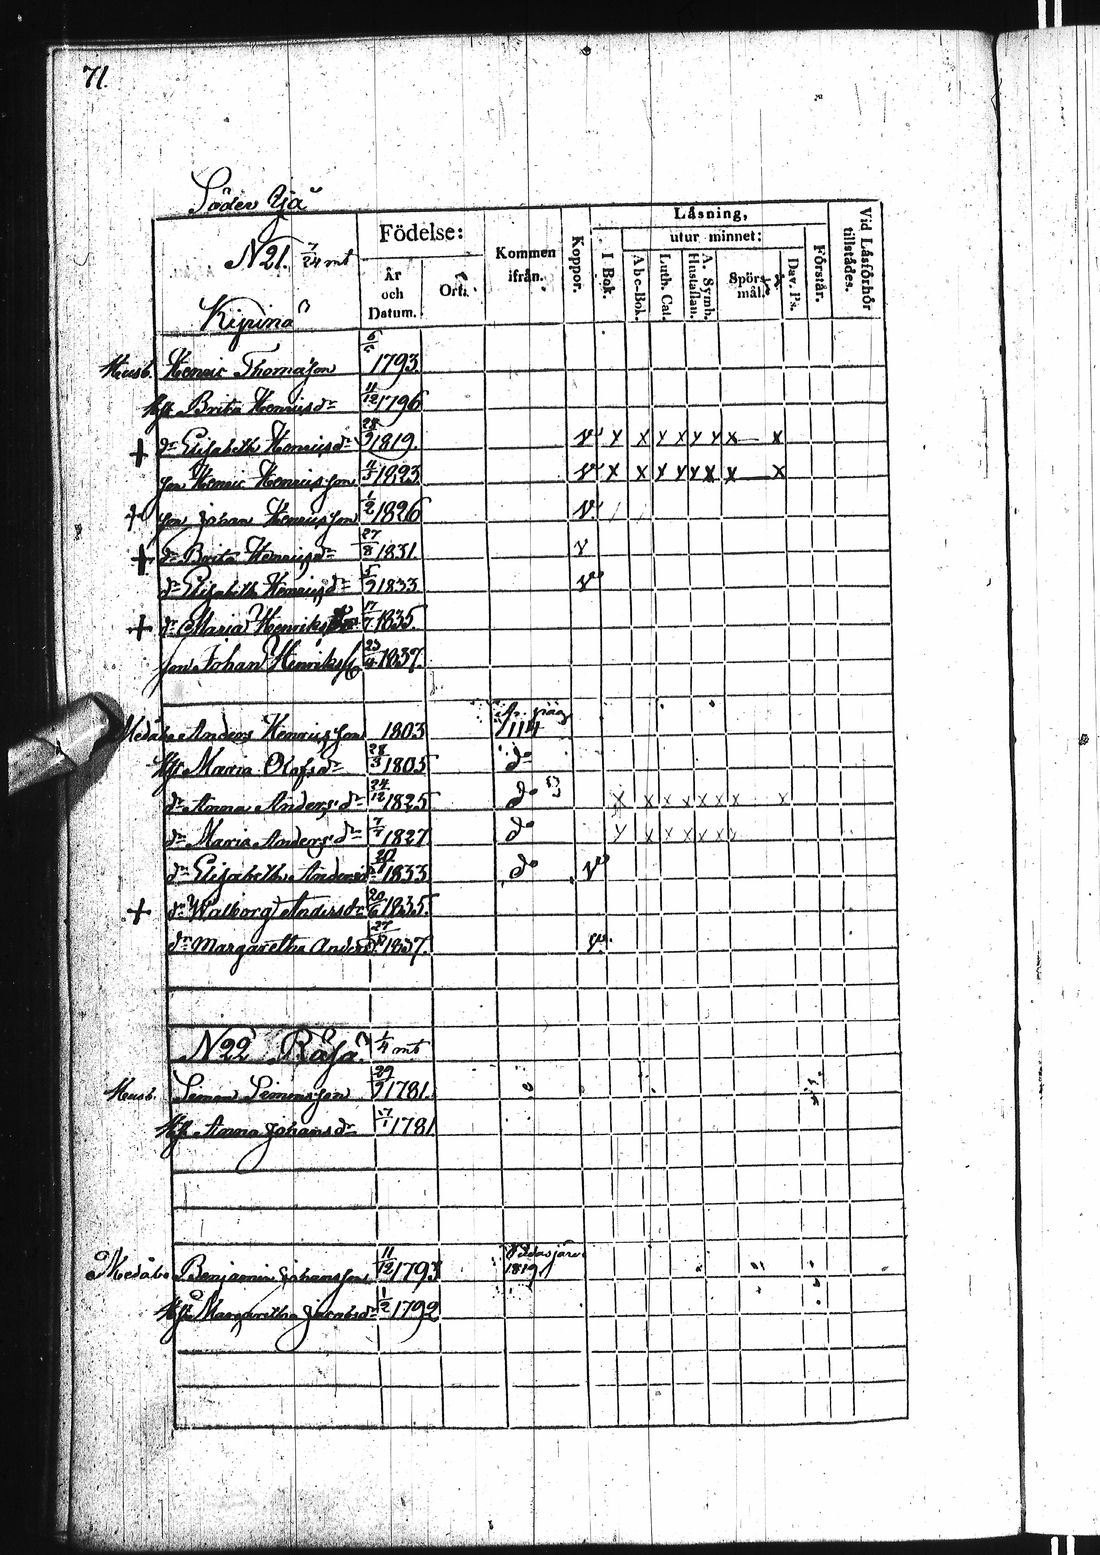 71.
Söder Yjä
N 21. 7/24 mt
Kipinä
Födelse:
År och Datum.
Ort.
Kommen ifrån.
Koppor.
Läsning,
utur minnet:
I Bok.
Abc-Bok.
Luth. Cat.
Hustaflan.
A. Symb.
Spörs-mål.
Dav. Ps.
Förstår.
Vid Läsförhör tillstädes.
Husb. Henric Thomasson 6/6 1793
Hst Brita Henricsdr 11/12 1796
+ dr Elisabeth Henricsdr 28/9 1819. v x x x x x x x x
son Henric Henricsson 11/3 1823 v x x x x x x x x
+ son Johan Henricsson 1/2 1826 v
+ dr Brita Henricsdr 27/8 1831 v
dr Elisabeth Henricsdr 5/9 1833 v
+ dr Maria Henriks 17/7 1835.
son Johan Henrikss 23/4 1837.
Medåbo Anders Henricsson 1803 114
Hst Maria Olofsdr 28/3 1805 do
dr Anna Andersdr 24/12 1825 do x x x x x x x x
dr Maria Andersdr 7/7 1827 do x x x x x x x
dr Elisabeth Andersdr 20 1833 do v
+ dr Walborg Andersdr 20/6 1835.
dr Margaretha Anders 27 1837. v
N 22 Räsä 1/4 mt
Husb. Simon Simonsson 29/9 1781
Hst Anna Johansdr 17/1 1781
Medåbo Benjamin Johansson 11/12 1793 1819
Hst Margaretha Jacobsdr 1/2 1792